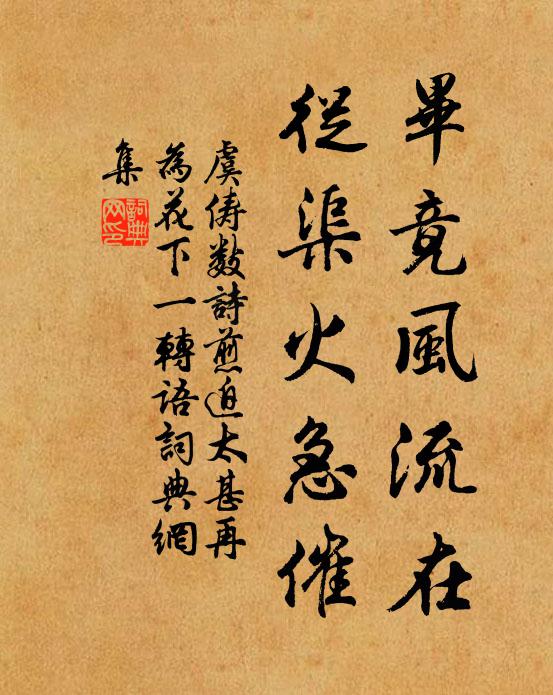 畢竟風流在
從渠火急催
虞儔數詩煎迫太甚再
為花下一轉語詞典網
集
詞典
网印